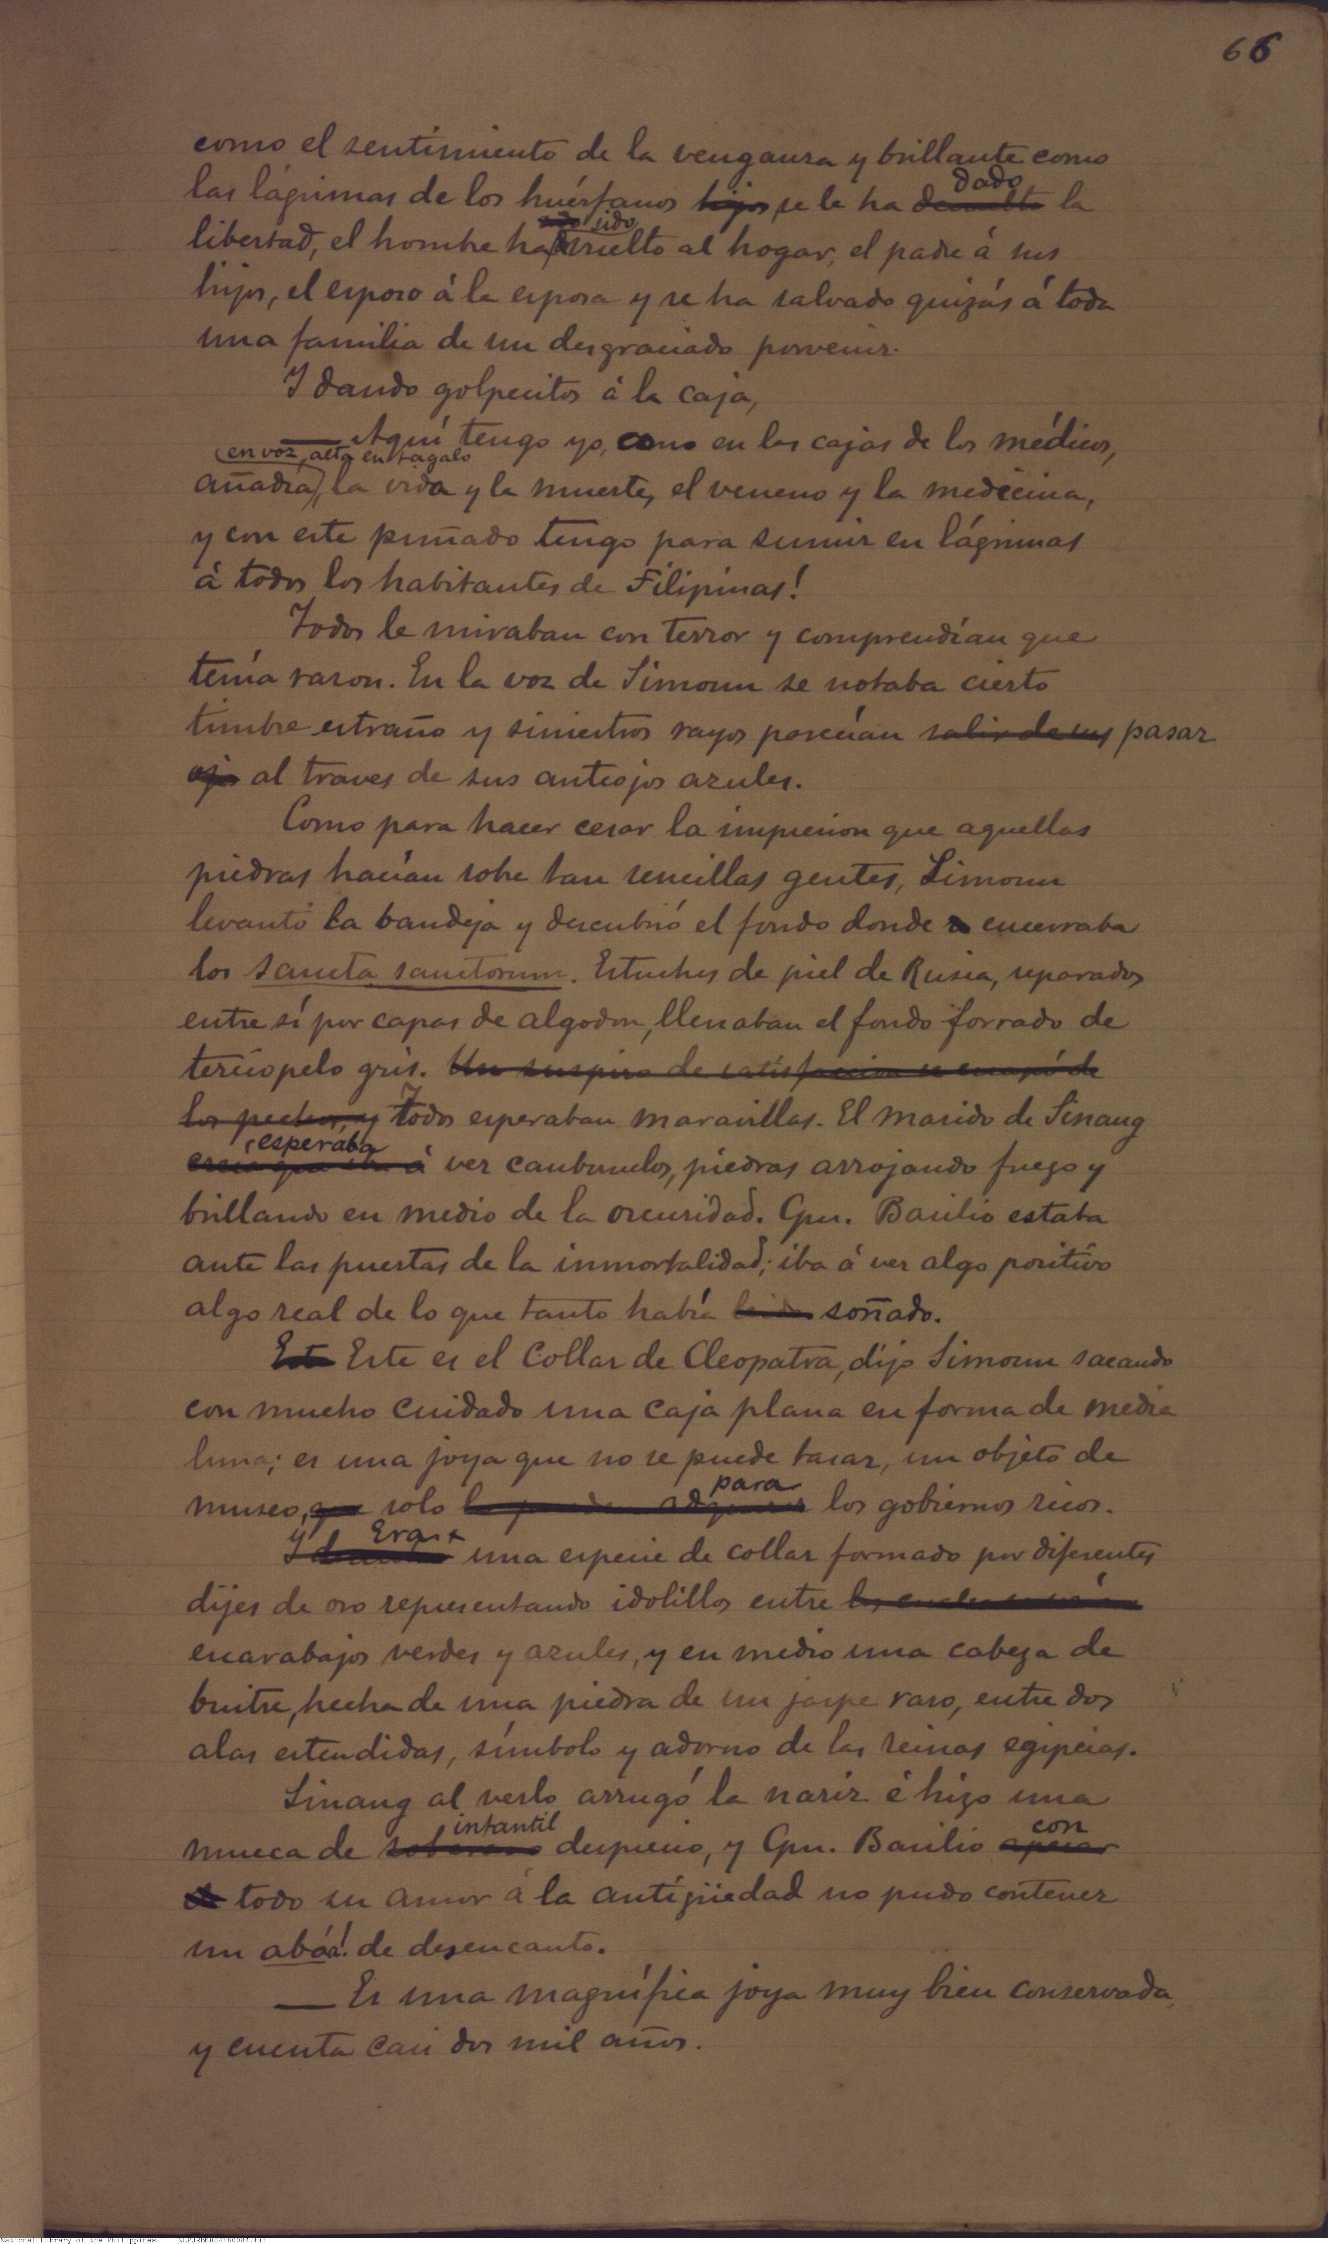 66
como el sentimiento de la venganza y brillante como
las lágrimas de los huérfanos hijos, se le ha devuelto dado la
libertad, el hombre ha sido devuelto al hogar, el padre á sus
hijos, el esposo á la esposa y se ha salvado quizás á toda
una familia de un desgraciado porvenir.
Y dando golpecitos á la caja,
— Aquí tengo yo, como en las cajas de los médicos,
(en voz alta en tagalo
añadía), la vida y la muerte, el veneno y la medicina,
y con este puñado tengo para sumir en lágrimas
á todos los habitantes de Filipinas!
Todos le miraban con terror y comprendían que
tenía razon. En la voz de Simoun se notaba cierto
timbre estraño y siniestros rayos parecían salir de sus pasar
ojos al traves de sus anteojos azules.
Como para hacer cesar la impresion que aquellas
piedras hacían sobre tan sencillas gentes, Simoun
levantó la bandeja y descubrió el fondo donde encerraba
los sancta sanctorum. Estuches de piel de Rusia, separados
entre sí por capas de algodon, llenaban el fondo forrado de
terciopelo gris. Un suspiro de satisfaccion se escapó de
los pechos, y Todos esperaban maravillas. El marido de Sinang
esperaba
creia que iba á ver carbunclos, piedras arrojando fuego y
brillando en medio de la oscuridad. Cpn. Basilio estaba
ante las puertas de la inmortalidad; iba á ver algo positivo
algo real de lo que tanto había soñado.
Este Este es el collar de Cleopatra, dijo Simoun sacando
con mucho cuidado una caja plana en forma de media
luna; es una joya que no se puede tasar, un objeto de
museo, que solo lo pueden adquirir para los gobiernos ricos.
Y Era una especie de collar formado por diferentes
dijes de oro representando idolillos entre
escarabajos verdes y azules, y en medio una cabeza de
buitre, hecha de una piedra de un jaspe raro, entre dos
alas estendidas, símbolo y adorno de las reinas egipcias.
Sinang al verlo arrugó la nariz é hizo una
mueca de soberano infantil desprecio, y Cpn. Basilio apesar con
de todo su amor á la antigüedad no pudo contener
un abáa! de desencanto.
— Es una magnífica joya muy bien conservada,
y cuenta casi dos mil años.